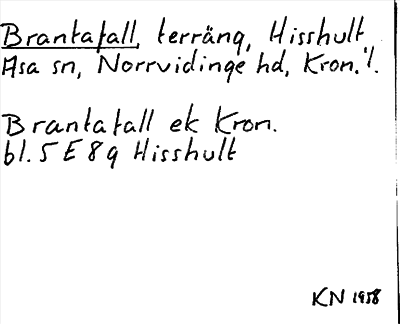 Brantafall, terräng, Hisshult
Asa sn, Norrvidinge hd, Kron. l.
Brantafall ek Kron.
bl. 5 E 8 g Hisshult
KN 1958